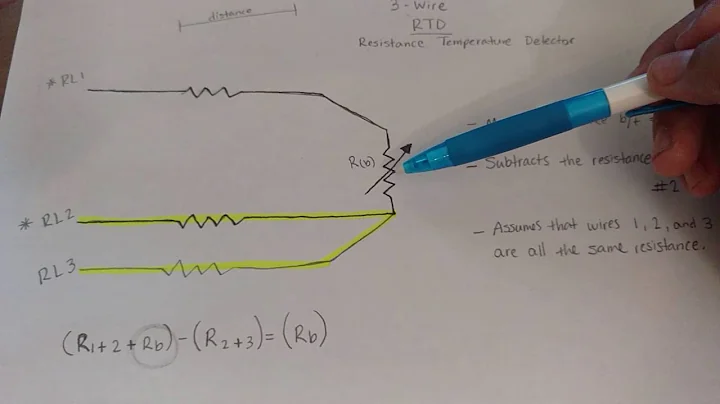 distance
3-Wire
RTD
Resistance Temperature Detector
* RL1
R(b)
- Subtracts the resistance
#2
* RL2
- Assumes that wires 1, 2, and 3
are all the same resistance.
RL3
(R1+2 + Rb) - (R2+3) = (Rb)